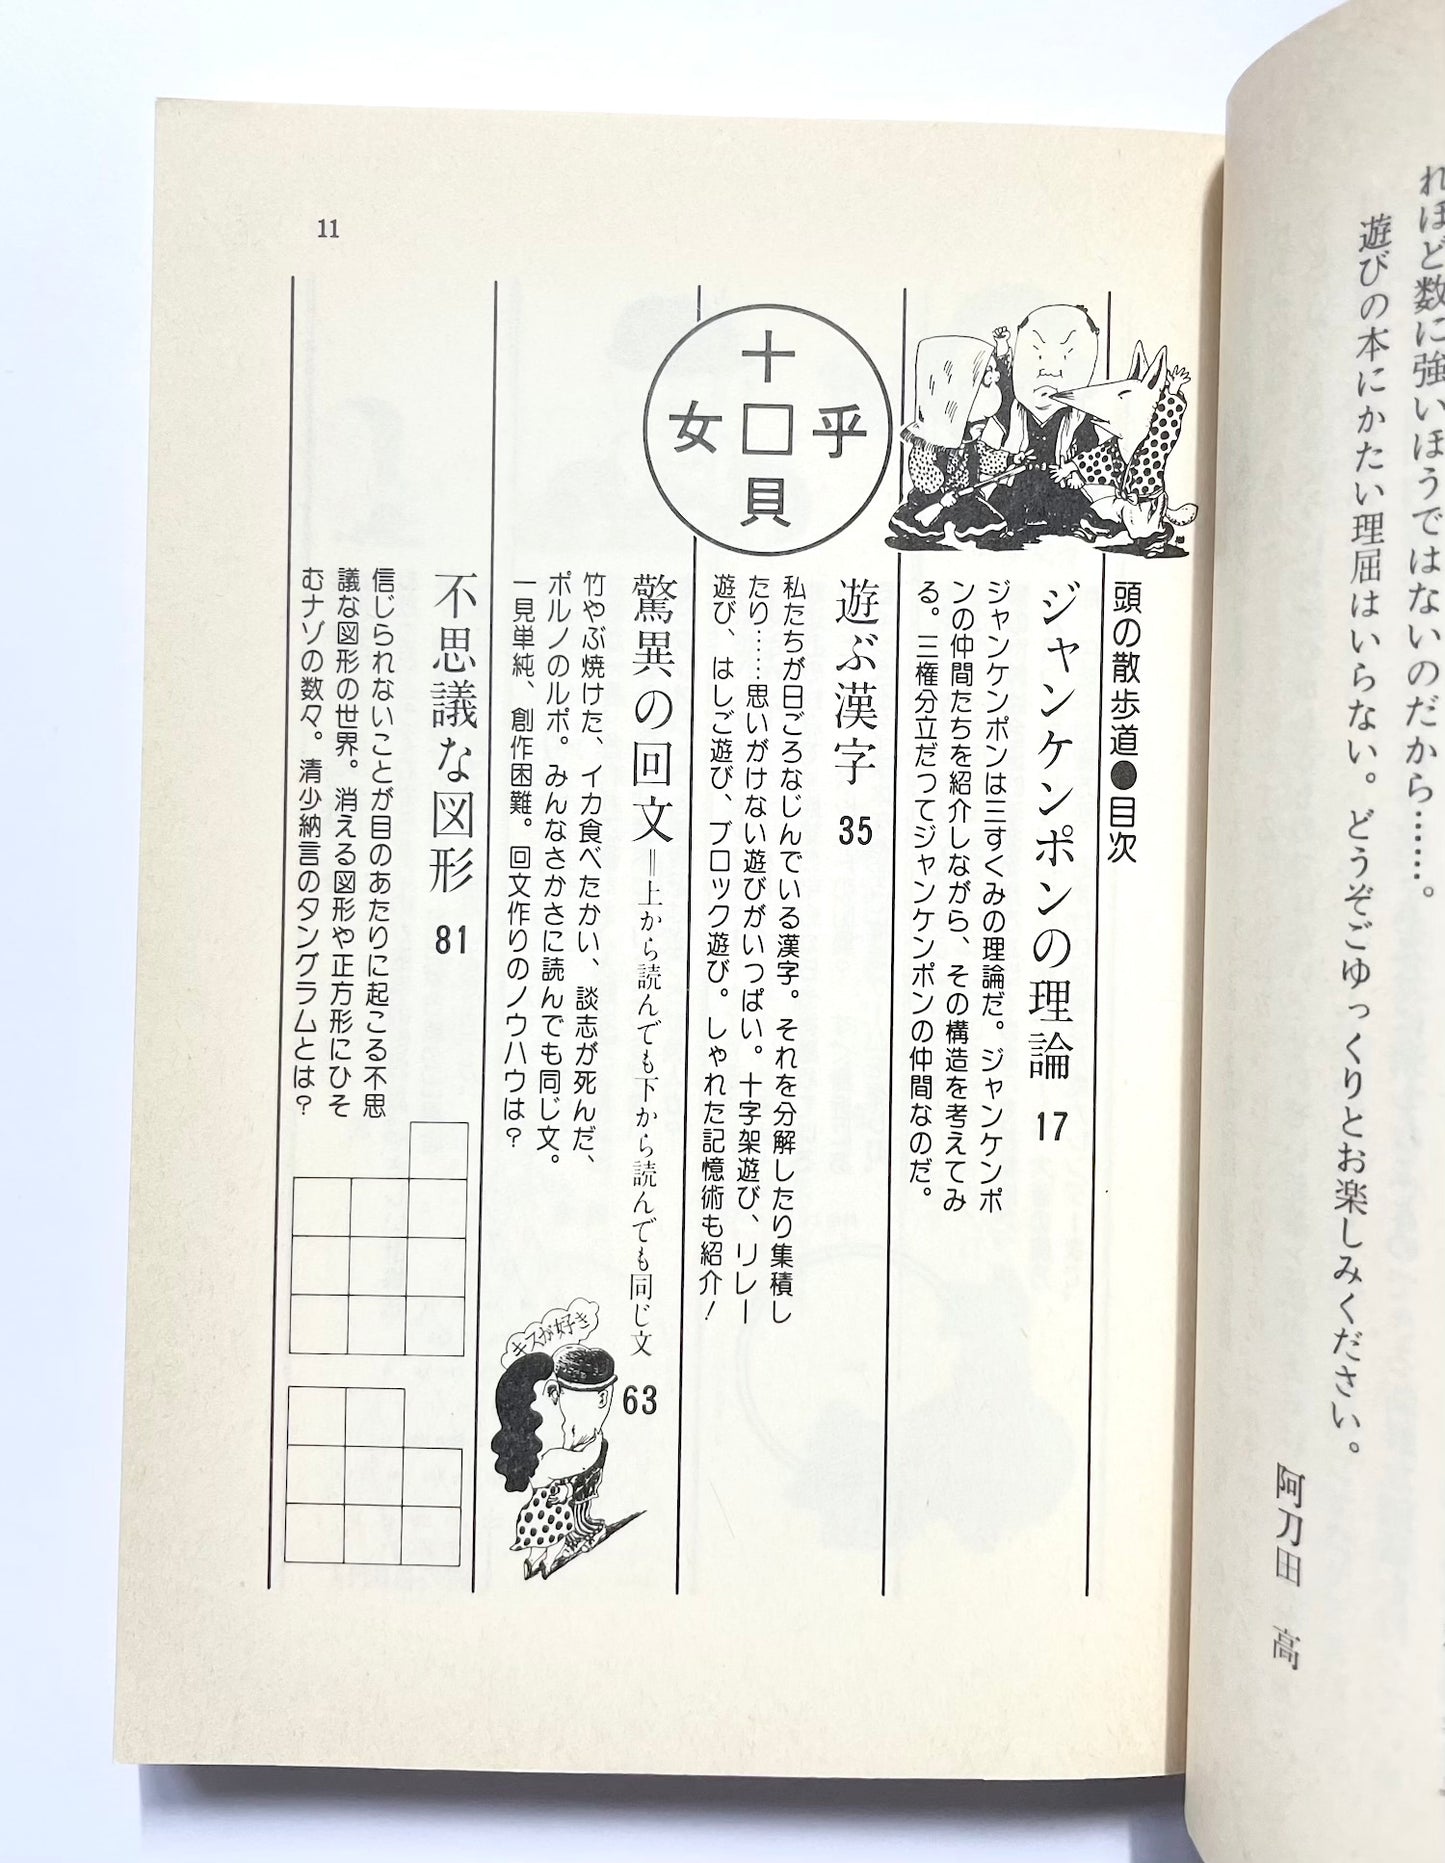 れほど数に強いほうではないのだから……。
遊びの本にかたい理屈はいらない。どうぞごゆっくりとお楽しみください。
阿刀田　高
頭の散歩道●目次
ジャンケンポンの理論 17
ジャンケンポンは三すくみの理論だ。ジャンケンポ
ンの仲間たちを紹介しながら、その構造を考えてみ
る。三権分立だってジャンケンポンの仲間なのだ。
十
女□乎
貝
遊ぶ漢字 35
私たちが日ごろなじんでいる漢字。それを分解したり集積し
たり……思いがけない遊びがいっぱい。十字架遊び、リレー
遊び、はしご遊び、ブロック遊び。しゃれた記憶術も紹介！
驚異の回文＝上から読んでも下から読んでも同じ文 63
竹やぶ焼けた、イカ食べたかい、談志が死んだ、
ポルノのルポ。みんなさかさに読んでも同じ文。
一見単純、創作困難。回文作りのノウハウは？
キスが好き
不思議な図形 81
信じられないことが目のあたりに起こる不思
議な図形の世界。消える図形や正方形にひそ
むナゾの数々。清少納言のタングラムとは？
11